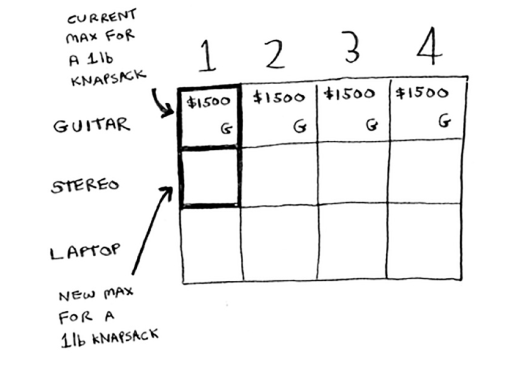 CURRENT
MAX FOR
A 1lb
KNAPSACK
1 2 3 4
GUITAR $1500 G $1500 G $1500 G $1500 G
STEREO
LAPTOP
NEW MAX
FOR A
1lb KNAPSACK